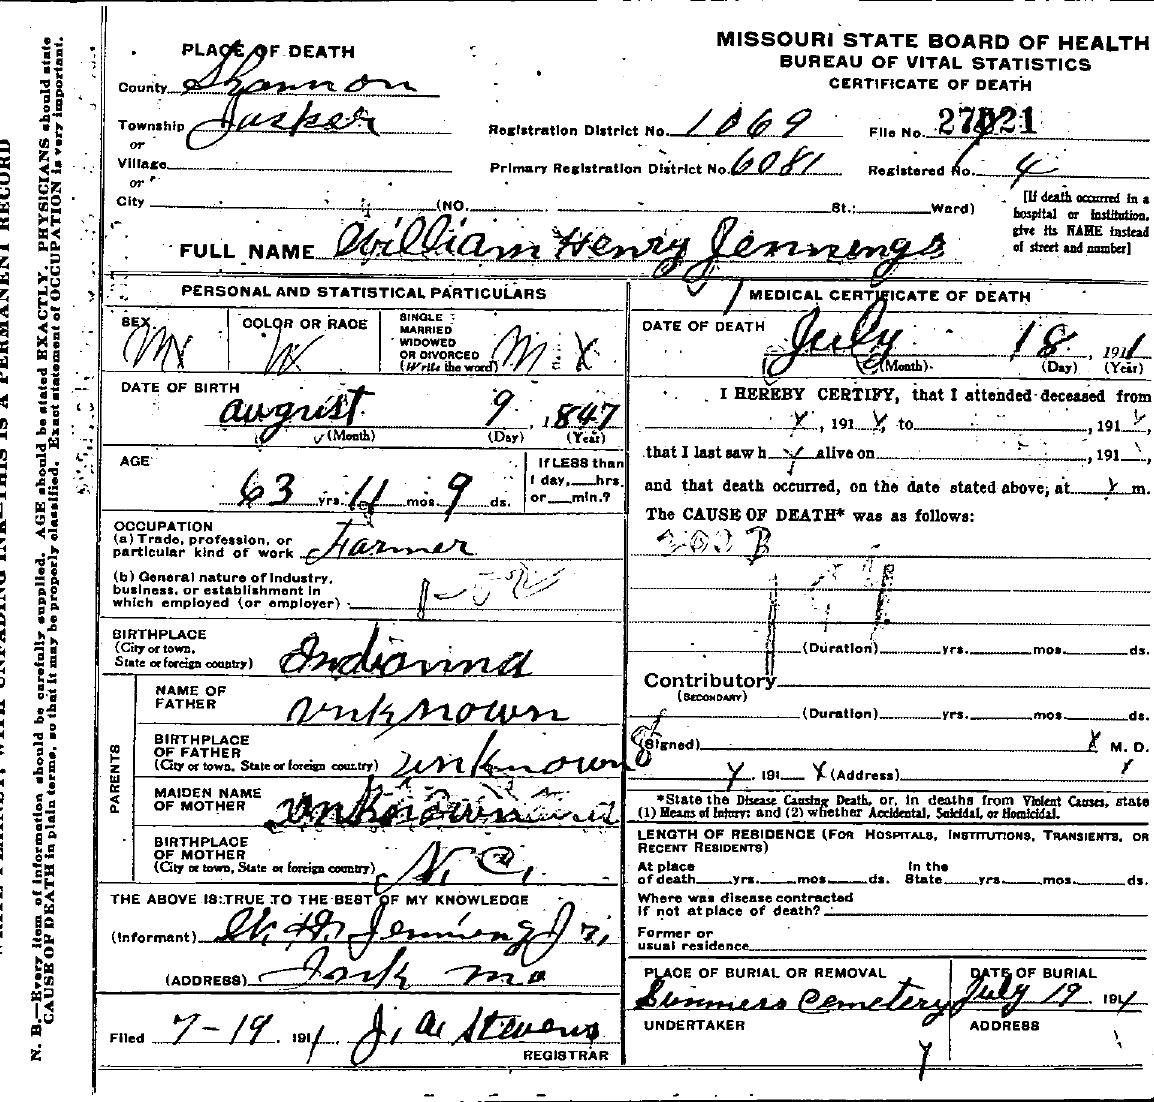 MISSOURI STATE BOARD OF HEALTH
BUREAU OF VITAL STATISTICS
CERTIFICATE OF DEATH
PLACE OF DEATH
County Shannon
Township Jasper
or
Village
or
City (NO. St.; Ward)
Registration District No. 1069
File No.
Primary Registration District No. 6081
Registered No. 4
[If death occurred in a
hospital or institution,
give its NAME instead
of street and number]
FULL NAME William Henry Jennings
PERSONAL AND STATISTICAL PARTICULARS
SEX M X
COLOR OR RACE W
SINGLE
MARRIED
WIDOWED
OR DIVORCED
(Write the word) M X
DATE OF BIRTH
august 9, 1847
(Month) (Day) (Year)
AGE
63 yrs. 11 mos. 9 ds.
If LESS than
1 day, hrs.
or min.?
OCCUPATION
(a) Trade, profession, or
particular kind of work Farmer
(b) General nature of Industry,
business, or establishment in
which employed (or employer)
BIRTHPLACE
(City or town,
State or foreign country) Indianna
PARENTS
NAME OF
FATHER unknown
BIRTHPLACE
OF FATHER
(City or town, State or foreign country) unknown
MAIDEN NAME
OF MOTHER unknown
BIRTHPLACE
OF MOTHER
(City or town, State or foreign country) N. C.
THE ABOVE IS TRUE TO THE BEST OF MY KNOWLEDGE
(Informant) W. H. Jennings Jr.
(ADDRESS) mo
Filed 7-19 1911 J. A. Stevens
REGISTRAR
MEDICAL CERTIFICATE OF DEATH
DATE OF DEATH July 18, 1911
(Month) (Day) (Year)
I HEREBY CERTIFY, that I attended deceased from
, 191 , to , 191 ,
that I last saw h alive on , 191 ,
and that death occurred, on the date stated above, at m.
The CAUSE OF DEATH* was as follows:
(Duration) yrs. mos. ds.
Contributory
(SECONDARY)
(Duration) yrs. mos. ds.
(Signed) X M. D.
191 X (Address)
*State the Disease Causing Death, or, in deaths from Violent Causes, state
(1) Means of Injury; and (2) whether Accidental, Suicidal, or Homicidal.
LENGTH OF RESIDENCE (FOR HOSPITALS, INSTITUTIONS, TRANSIENTS, OR
RECENT RESIDENTS)
At place
of death yrs. mos. ds.
In the
State yrs. mos. ds.
Where was disease contracted
if not at place of death?
Former or
usual residence
PLACE OF BURIAL OR REMOVAL
Summers Cemetery
DATE OF BURIAL
July 19 1911
UNDERTAKER
ADDRESS
N. B.—Every item of information should be carefully supplied. AGE should be stated EXACTLY. PHYSICIANS should state
CAUSE OF DEATH in plain terms, so that it may be properly classified. Exact statement of OCCUPATION is very important.